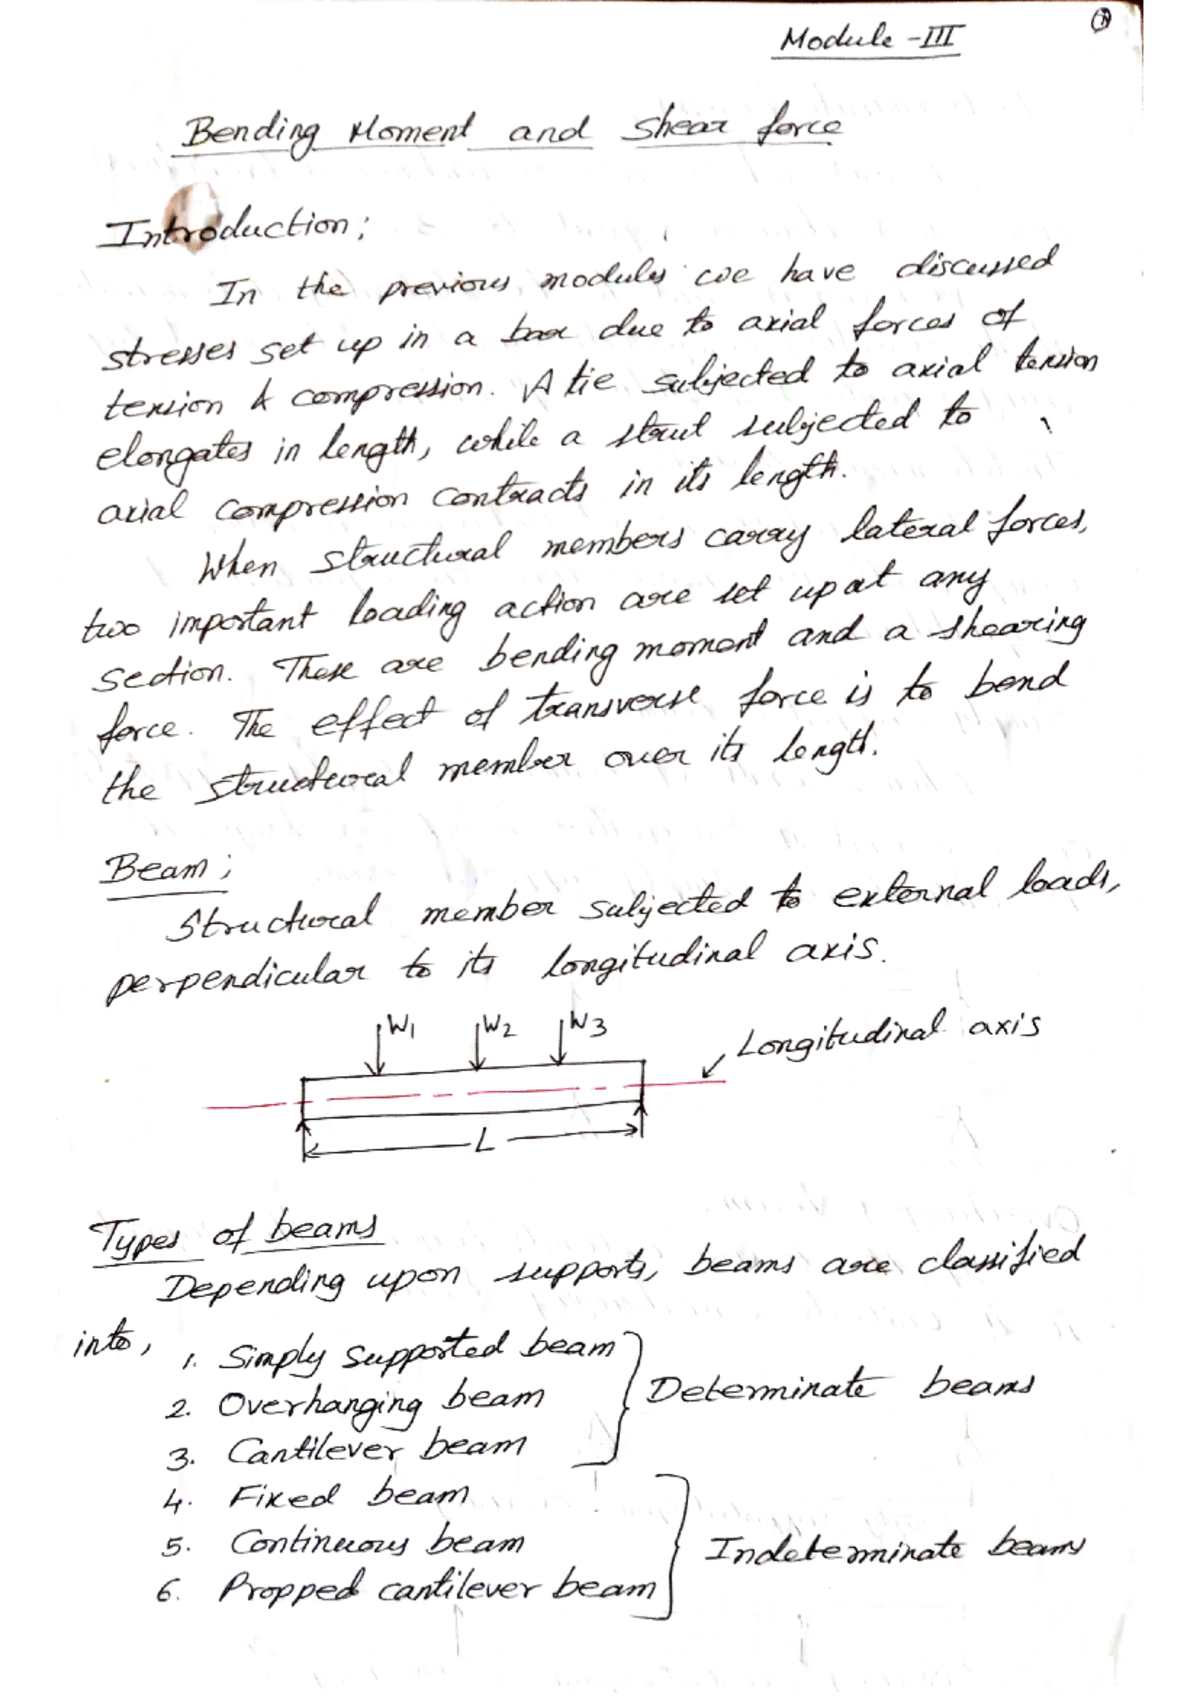 Module -III
Bending Moment and Shear force
Introduction;
In the previous modules we have discussed
stresses set up in a bar due to axial forces of
tension & compression. A tie subjected to axial tension
elongates in length, while a strut subjected to
axial compression contracts in its length.
When structural members carry lateral forces,
two important loading action are set up at any
section. These are bending moment and a shearing
force. The effect of transverse force is to bend
the structural member over its length.
Beam;
Structural member subjected to external loads,
perpendicular to its longitudinal axis.
W1 W2 W3 Longitudinal axis
L
Types of beams
Depending upon supports, beams are classified
into,
1. Simply supported beam
2. Overhanging beam Determinate beams
3. Cantilever beam
4. Fixed beam
5. Continuous beam Indeterminate beams
6. Propped cantilever beam